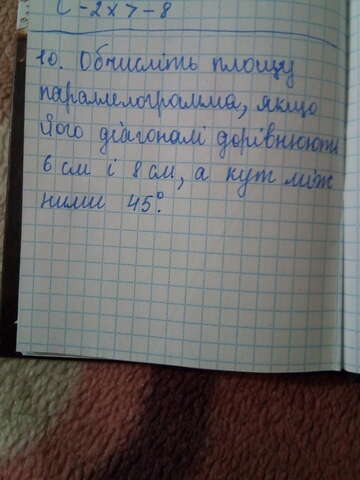 -2x > -8
10. Обчисліть площу
паралелограмма, якщо
його діагоналі дорівнюють
6 см і 8 см, а кут між
ними 45°.